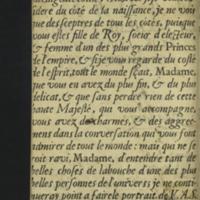 dere du côté de sa naissance, je ne voi
que des sceptres de tous les côtés, puisque
vous estes fille de Roy, sœur d'electeur,
& femme d'un des plus grands Princes
de l'empire, & si je vous regarde du costé
de l'esprit, tout le monde sçait, Madame,
que vous en avez du plus fin, & du plus
delicat, & que sans perdre rien de cette
haute Majesté, qui vous accompagne,
vous avez des charmes, & des aggree-
mens dans la conversation qui vous font
admirer de tout le monde: mais qui ne se-
roit ravi, Madame, d'entendre tant de
belles choses de la bouche d'une des plus
belles personnes de l'univers; je ne conti-
nueray point a faire le portrait de V. A. S.